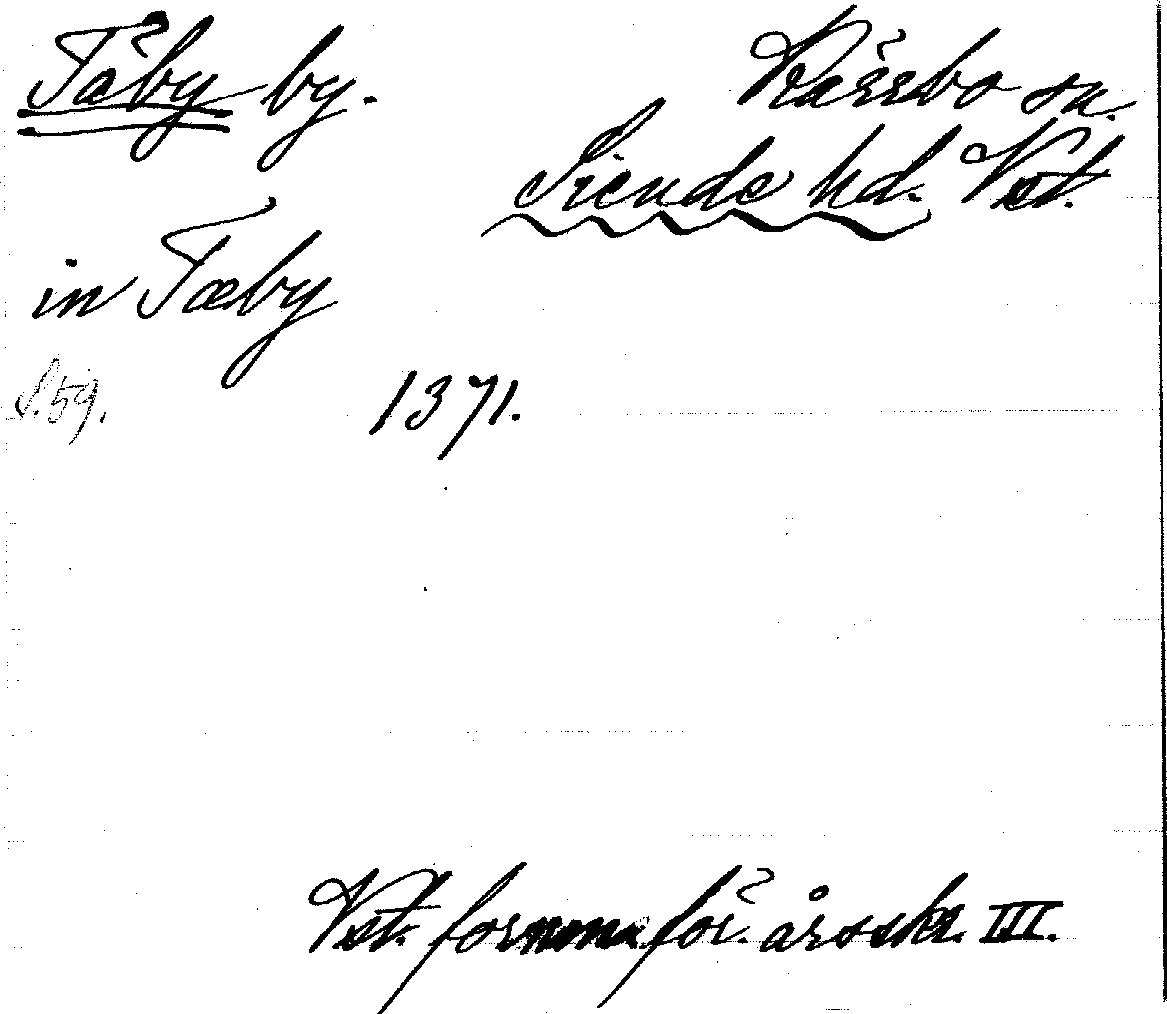 Täby by. Kärrbo sn.
Siende hd. Vst.
in Tæby
S. 59. 1371.
Vst. fornminneför. årsskr. III.